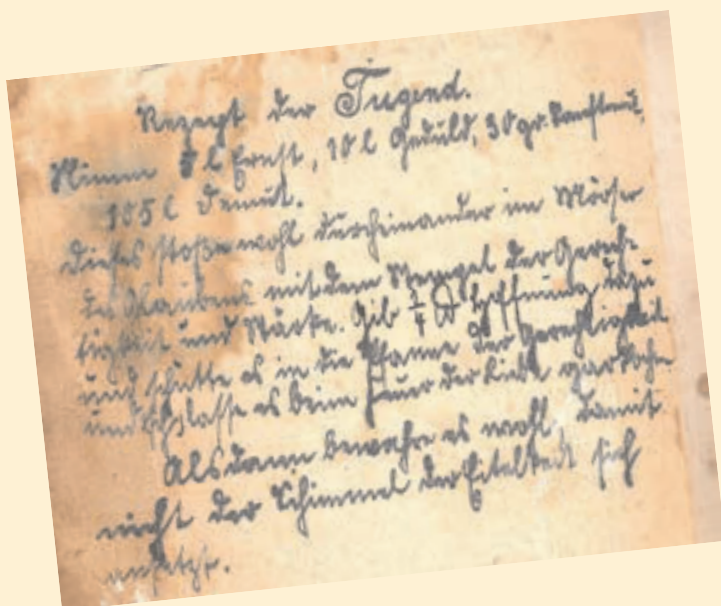 Rezept der Tugend.
Nimm l Ernst, 10 l Geduld, 30 gr. Sanftmut,
105 l Demut.
Dieses stoße wohl durcheinander im Mörser
des Glaubens mit dem Stengel der Gerech-
tigkeit und Stärke. Gib Hoffnung dazu
und schütte es in die Pfanne der Gerechtigkeit
und lasse es beim Feuer der Liebe garkochen
Alsdann bewahre es wohl, damit
nicht der Schimmel der Eitelkeit sich
ansetzt.